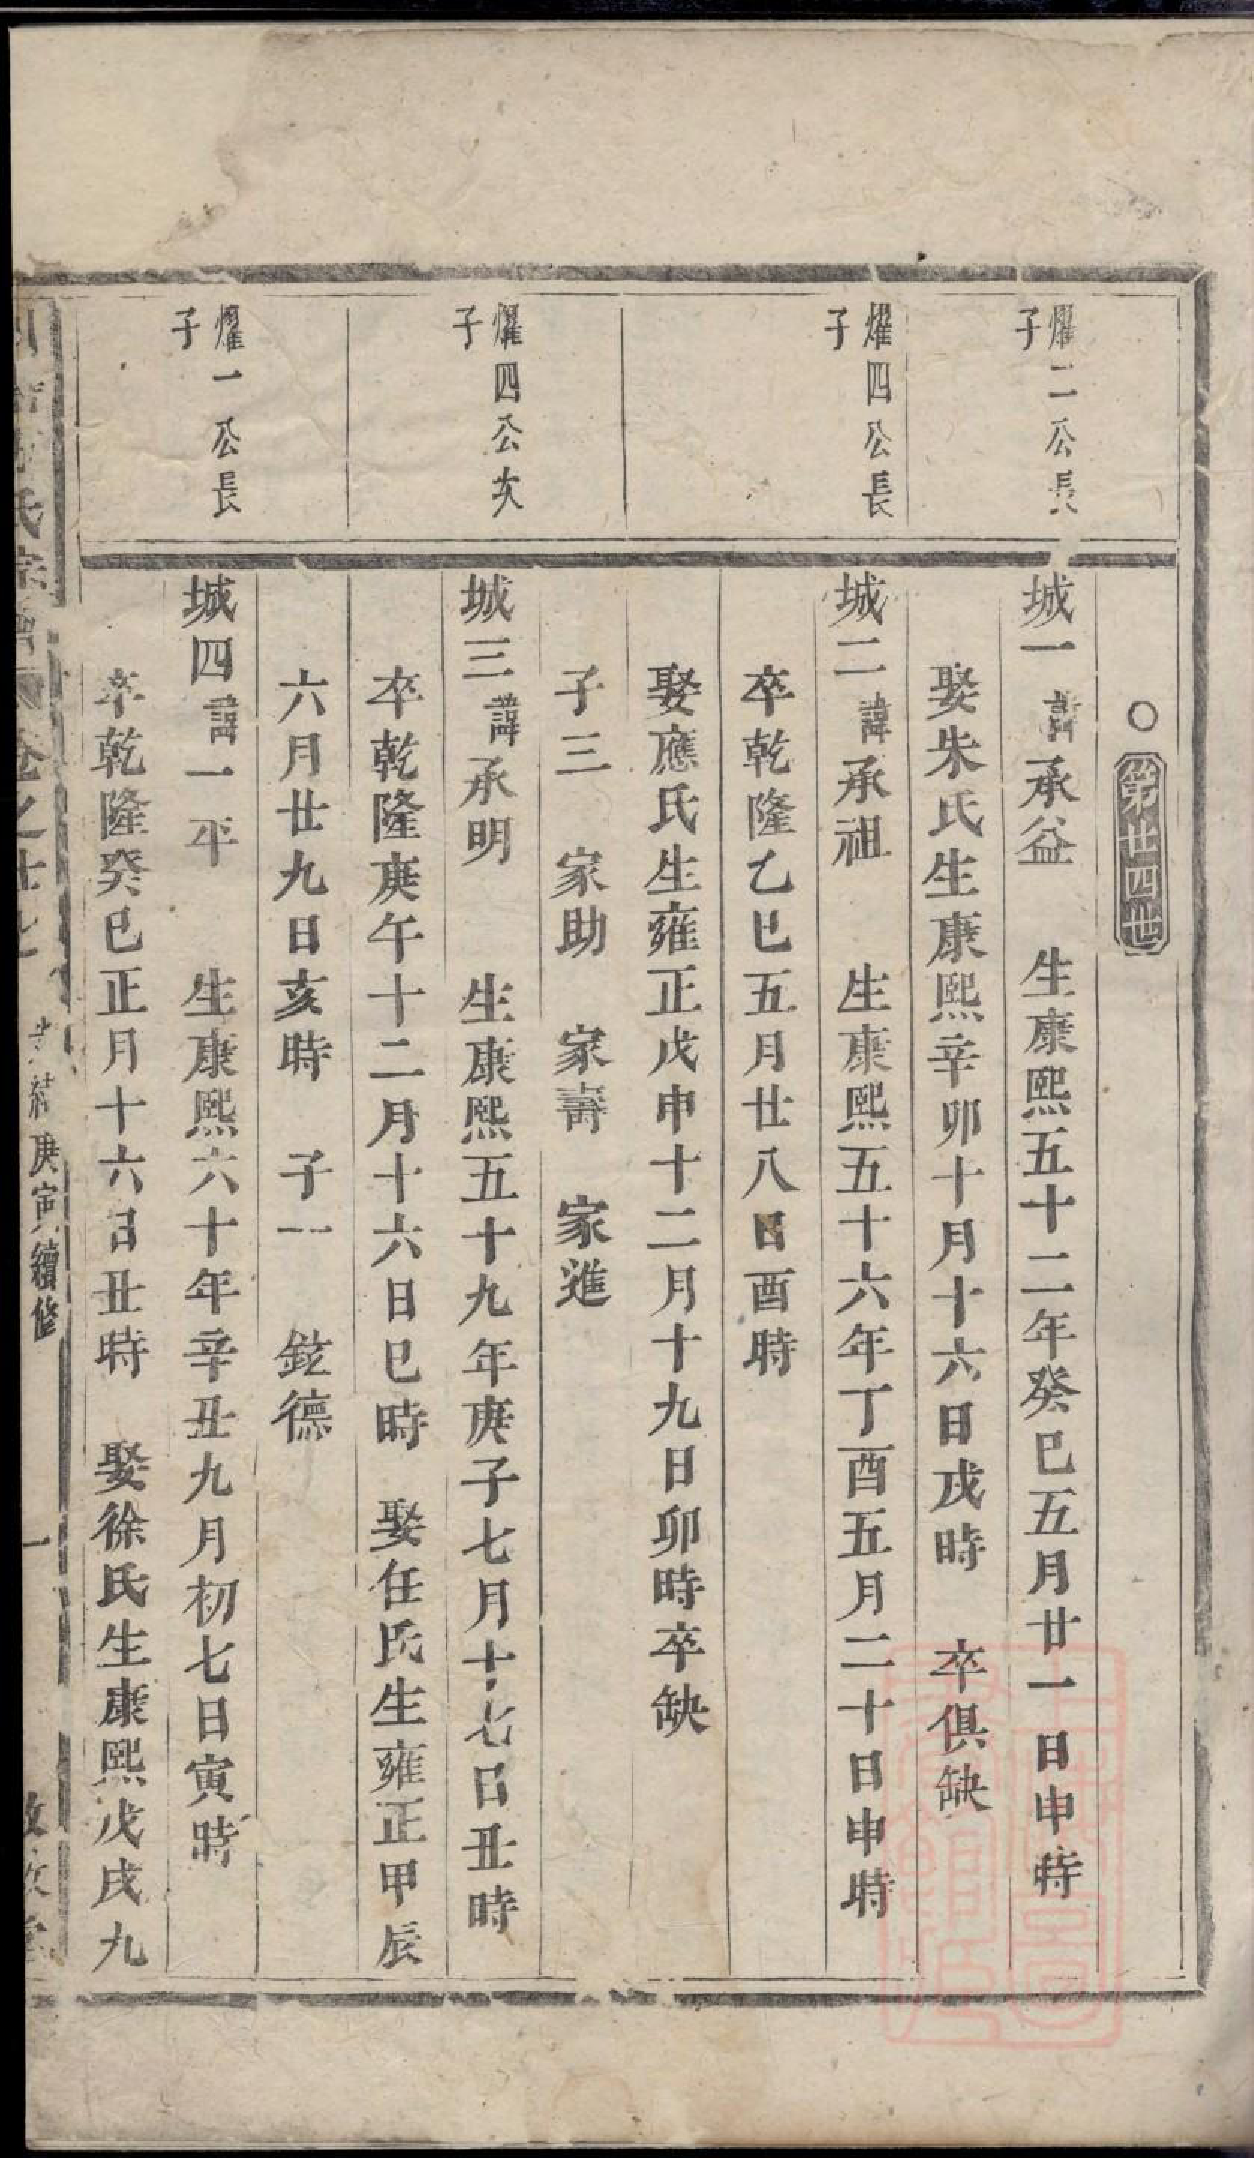 第廿四世
燿二公長
子
城一諱承益 生康熙五十二年癸巳五月廿一日申時
娶朱氏生康熙辛卯十月十六日戌時 卒俱缺
燿四公長
子
城二諱承祖 生康熙五十六年丁酉五月二十日申時
卒乾隆乙巳五月廿八日酉時
娶應氏生雍正戊申十二月十九日卯時卒缺
子三 家助 家壽 家進
燿四公次
子
城三諱承明 生康熙五十九年庚子七月十七日丑時
卒乾隆庚午十二月十六日巳時 娶任氏生雍正甲辰
六月廿九日亥時 子一 鉉德
燿一公長
子
城四諱一平 生康熙六十年辛丑九月初七日寅時
卒乾隆癸巳正月十六日丑時 娶徐氏生康熙戊戌九
氏宗譜 卷之廿七 光緒庚寅續修 一
上海圖書館藏